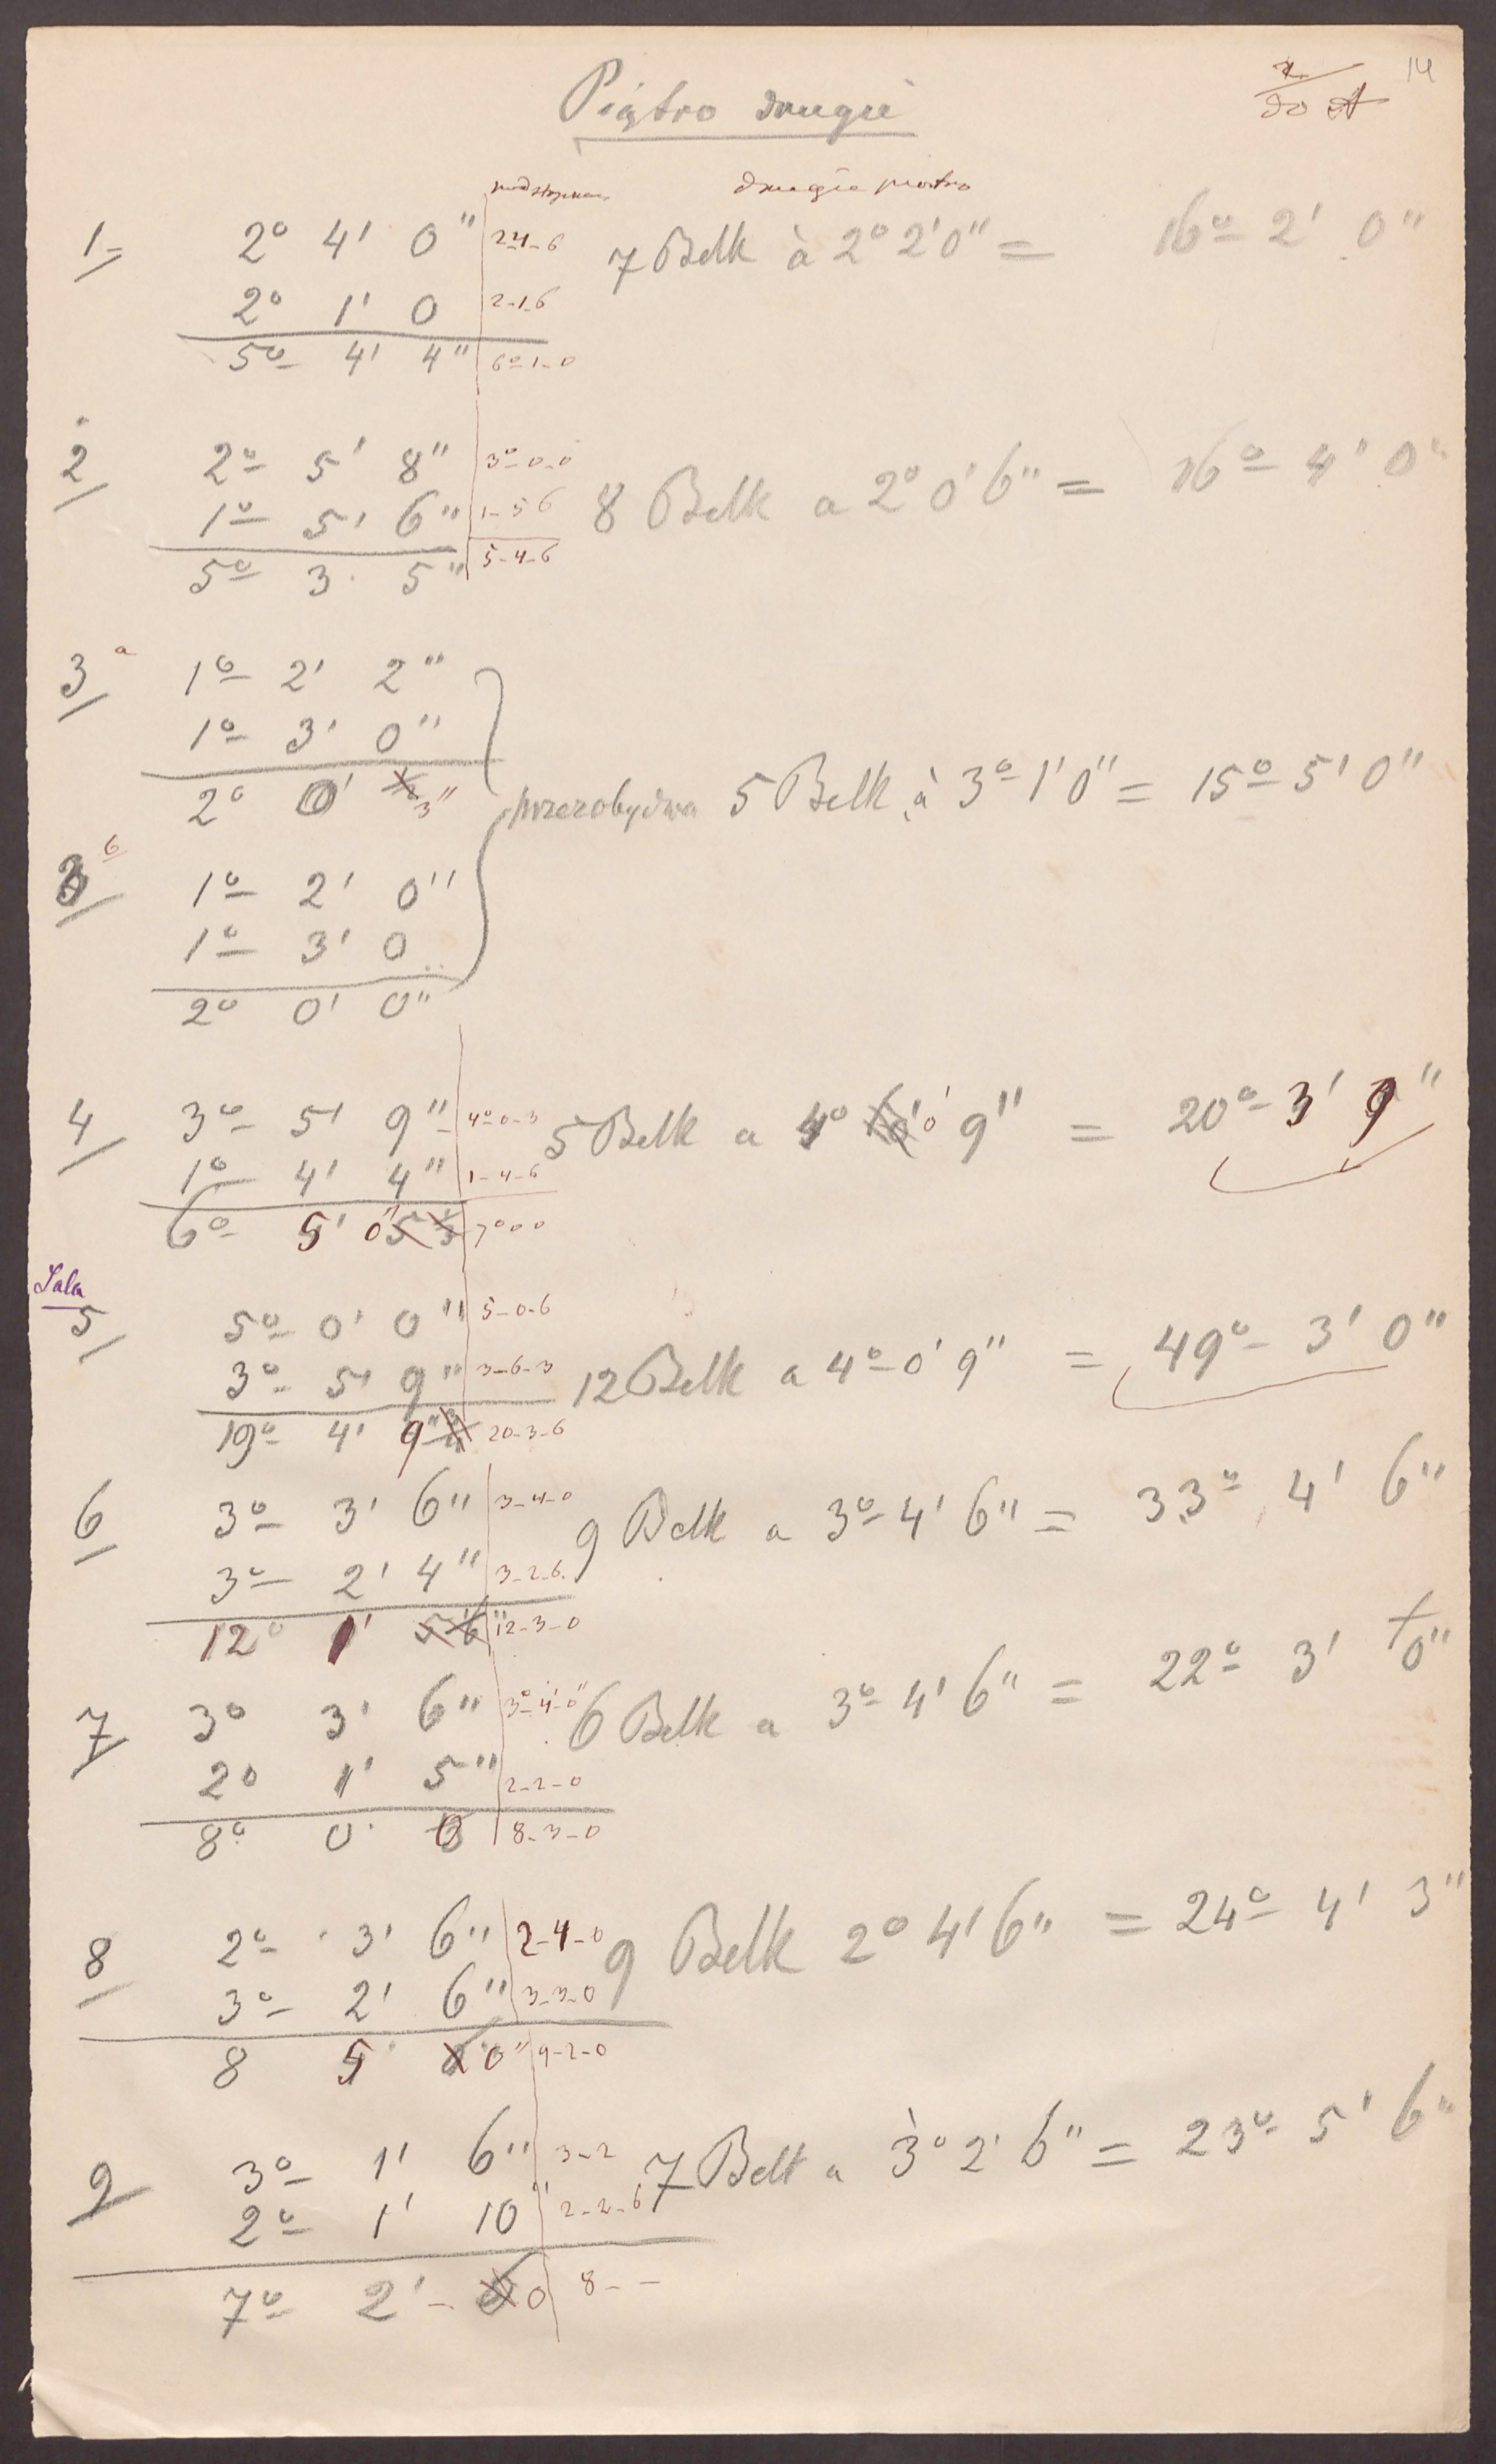 14
do A
Piątro drugie
drugie piętro
1 2° 4' 0" 2-4-6 7 Belk à 2° 2' 0" = 16° 2' 0"
2° 1' 0 2-1-6
5° 4' 4" 6°-1-0
2 2° 5' 8" 3°-0-0 8 Belk a 2° 0' 6" = 16° 4' 0"
1° 5' 6" 1-5 6
5° 3 5" 5-4-6
3 a 1° 2' 2"
1° 3' 0"
2° 0' 3"
5 Belk à 3° 1' 0" = 15° 5' 0"
3 b 1° 2' 0"
1° 3' 0
2° 0' 0"
4 3° 5' 9" 4°-0-3 5 Belk a 4° 0' 9" = 20° 3' 9"
1° 4' 4" 1-4-6
6° 5' 0" 7°0 0
Sala
5 5° 0' 0" 5-0-6 12 Belk a 4° 0' 9" = 49° 3' 0"
3° 5' 9" 3-6-3
19° 4' 9" 20-3-6
6 3° 3' 6" 3-4-0 9 Belk a 3° 4' 6" = 33° 4' 6"
3° 2' 4" 3-2-6
12° 1' 12-3-0
7 3° 3' 6" 3°-4'-0" 6 Belk a 3° 4' 6" = 22° 3' 0"
2° 1' 5" 2-2-0
8° 0 0 8-3-0
8 2° 3' 6" 2-4-0 9 Belk 2° 4' 6" = 24° 4' 3"
3° 2' 6" 3-3-0
8 5' 0" 9-2-0
9 3° 1' 6" 3-2 7 Belk a 3° 2' 6" = 23° 5' 6"
2° 1' 10" 2-2-6
7° 2' - 0 8 - -